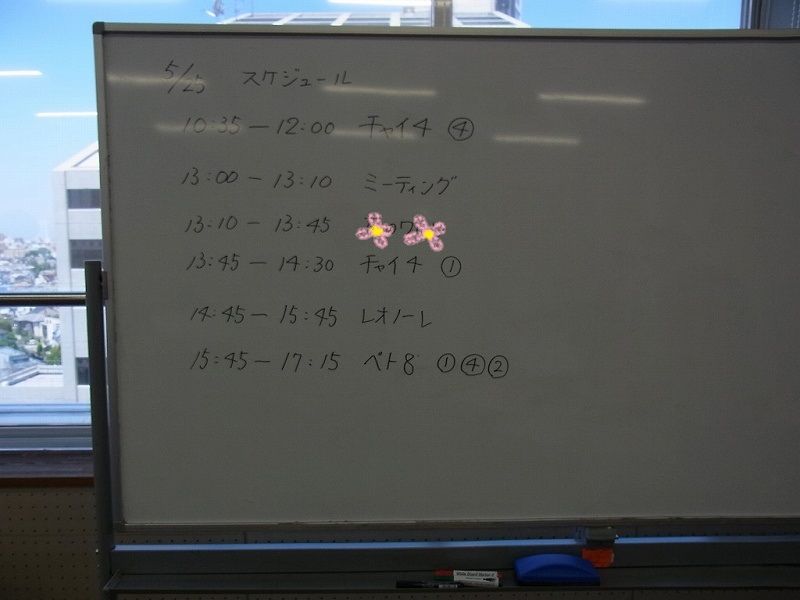 5/25 スケジュール
10:35 ー 12:00 チャイ4 ④
13:00 ー 13:10 ミーティング
13:10 ー 13:45
13:45 ー 14:30 チャイ4 ①
14:45 ー 15:45 レオノーレ
15:45 ー 17:15 ベト8 ①④②